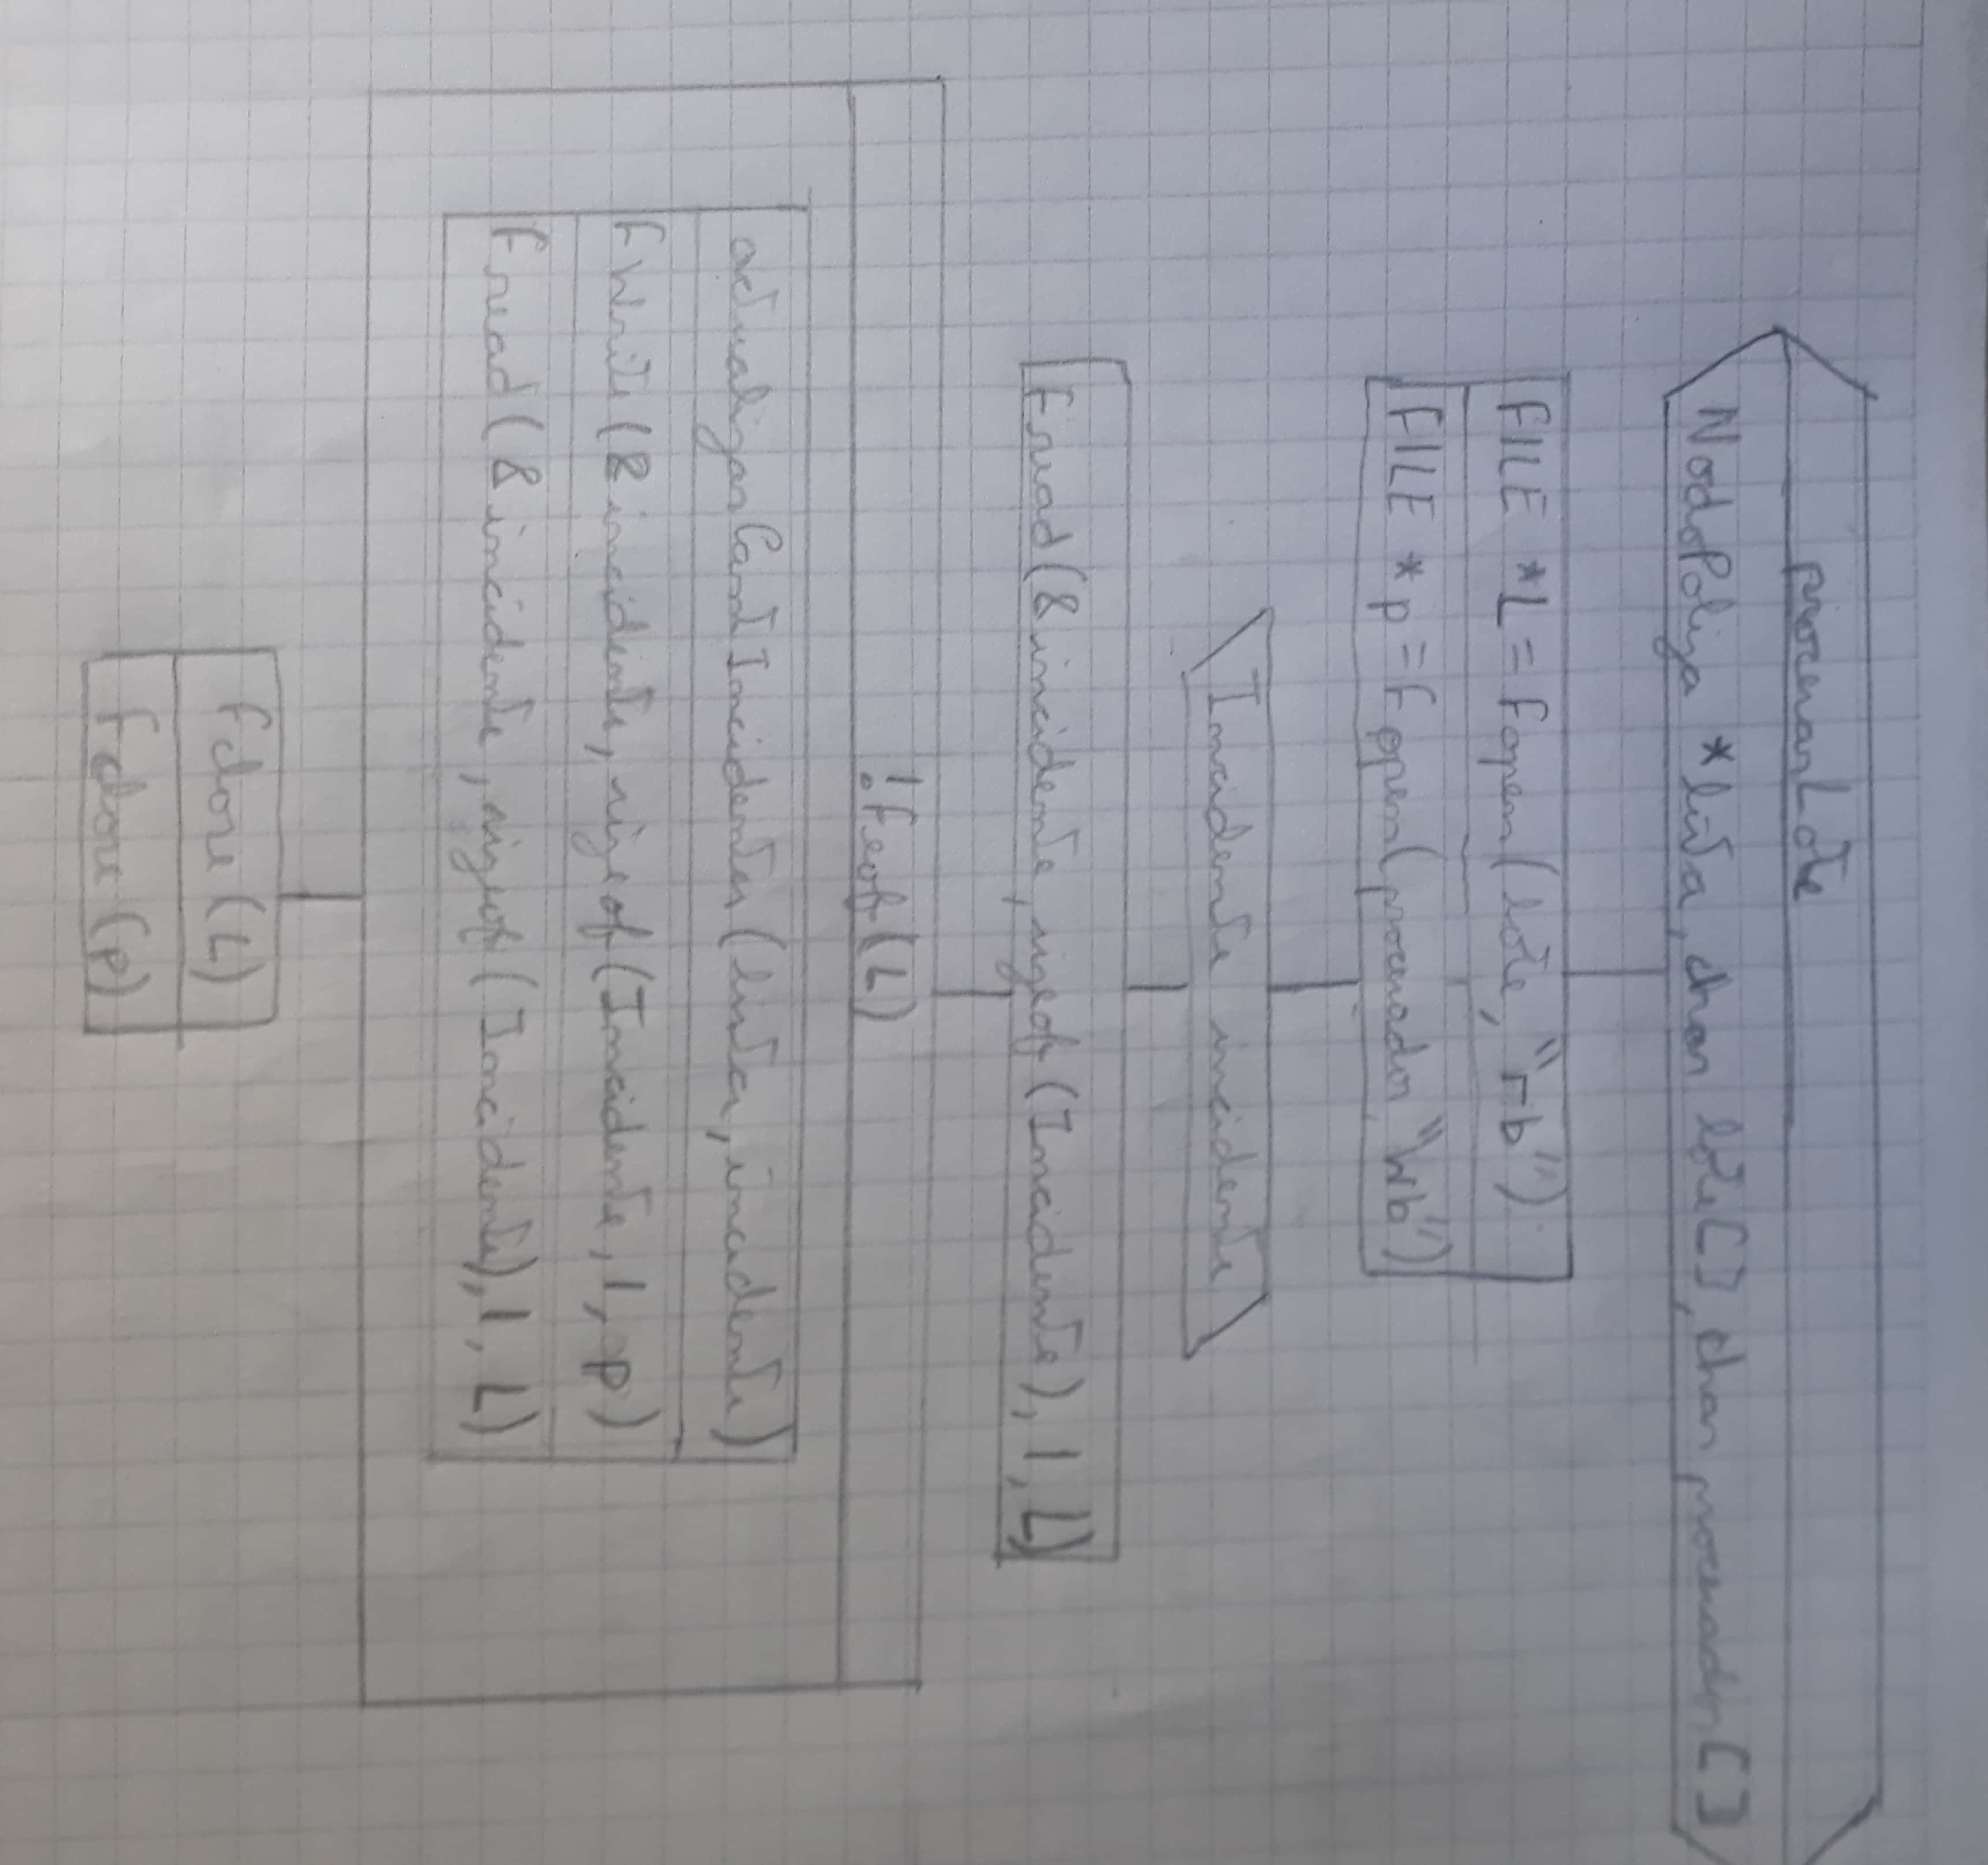 procesarLote
NodoPoliza *lista, char lote[], char procesador[]
FILE *L = fopen(lote, "rb")
FILE *p = fopen(procesador, "wb")
Incidente incidente
fread(&incidente, sizeof(Incidente), 1, L)
!feof(L)
actualizarCantIncidentes(lista, incidente)
fwrite(&incidente, sizeof(Incidente, 1, p)
fread(&incidente, sizeof(Incidente), 1, L)
fclose(L)
fclose(p)